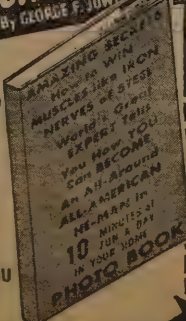 By GEORGE F. JOW
AMAZING SECRETS
How to WIN
MUSCLES like IRON
NERVES of STEEL
World's Great
EXPERT Tells
You How YOU
Can BECOME
An All-Around
ALL-AMERICAN
HE-MAN in
10 MINUTES OF
FUN A DAY
IN YOUR HOME
PHOTO BOOK
U